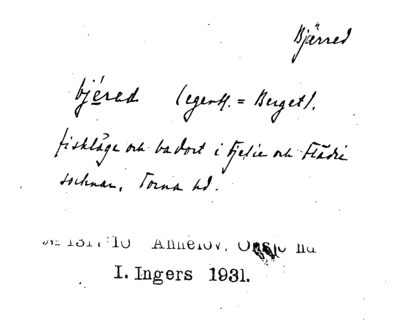 Bjärred
bjérad (egentl. = Berget).
fiskläge och badort i Fjelie och Flädie
socknar, Torna hd.
I. Ingers 1931.